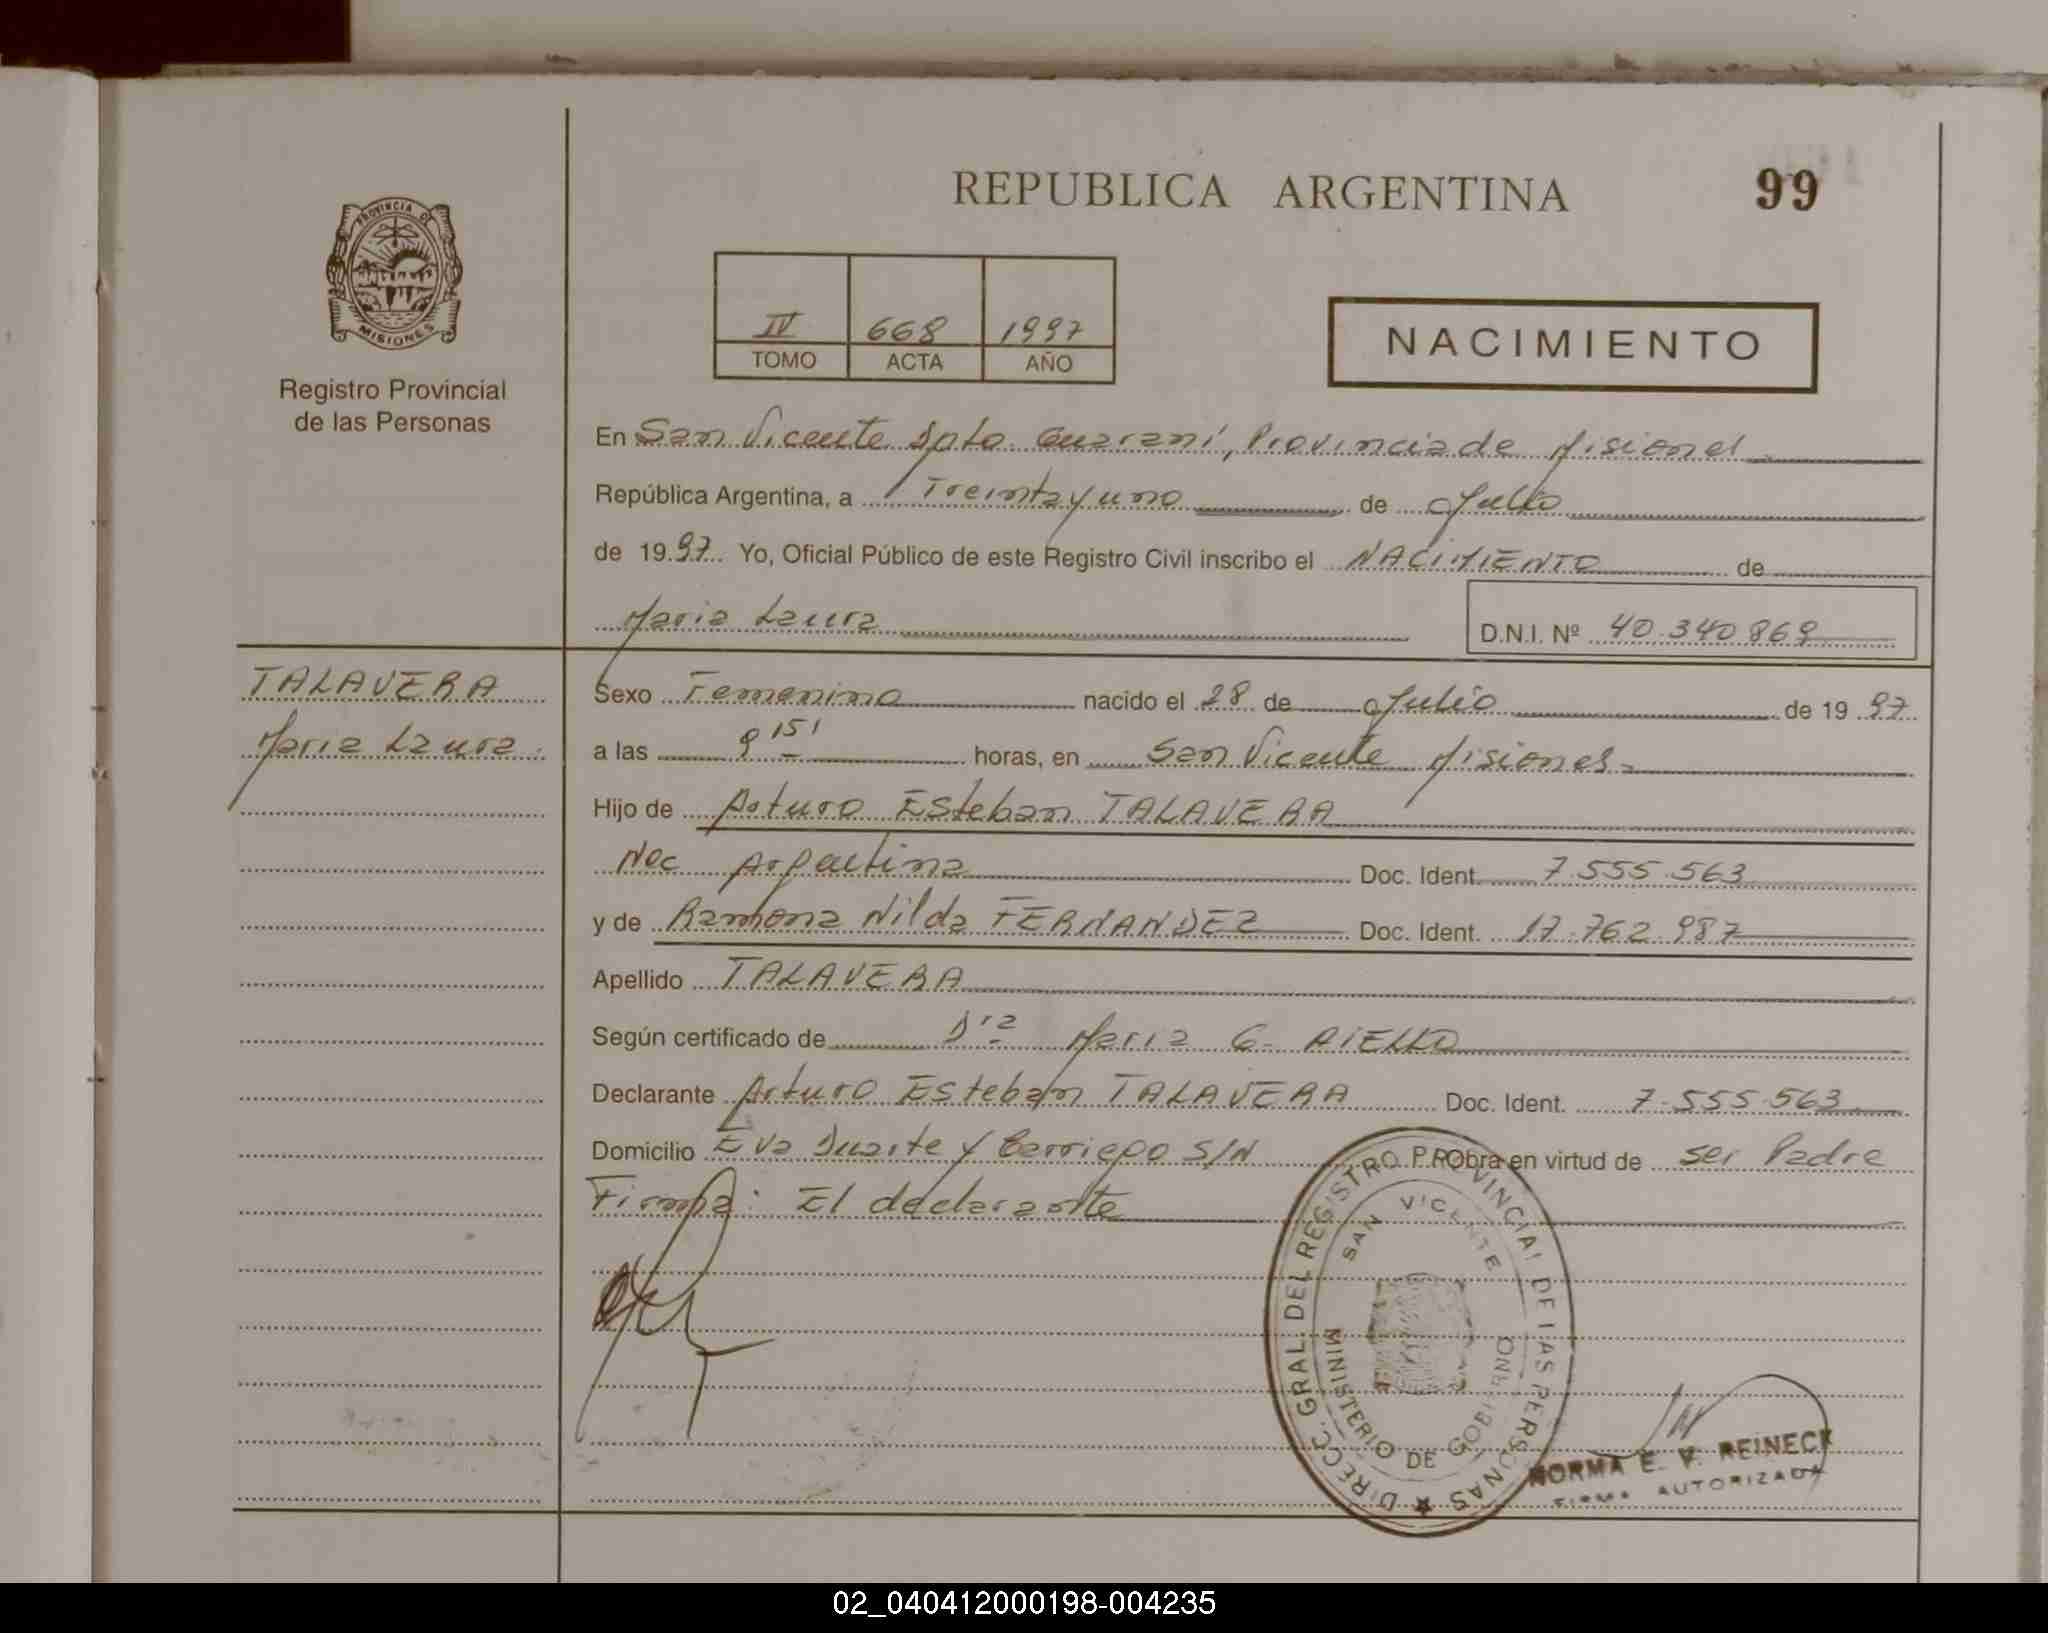 REPUBLICA ARGENTINA
99
PROVINCIA DE
MISIONES
Registro Provincial
de las Personas
IV 668 1997
TOMO ACTA AÑO
NACIMIENTO
En San Vicente Dpto. Guaraní, Provincia de Misiones
República Argentina, a Treinta y uno de Julio
de 1997. Yo, Oficial Público de este Registro Civil inscribo el NACIMIENTO de
Maria Laura
D.N.I. Nº 40.340.869
TALAVERA
Maria Laura.
Sexo Femenino nacido el 28 de Julio de 1997
a las 9 15' horas, en San Vicente Misiones-
Hijo de Arturo Esteban TALAVERA
Nac Argentina Doc. Ident. 7.555.563
y de Ramona Nilda FERNANDEZ Doc. Ident. 17.762.987
Apellido TALAVERA
Según certificado de Dra Maria G. AIELLO
Declarante Arturo Esteban TALAVERA Doc. Ident. 7.555.563
Domicilio Eva Duarte y Carriego S/N P. P. Obra en virtud de ser Padre
Firma: El declarante
DIRECC. GRAL. DEL REGISTRO PROVINCIAL DE LAS PERSONAS
SAN VICENTE
MINISTERIO DE GOBIERNO
NORMA E. V. REINECK
FIRMA AUTORIZADA
02_040412000198-004235